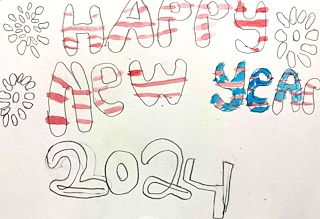 HAPPY
New YEAR
2024